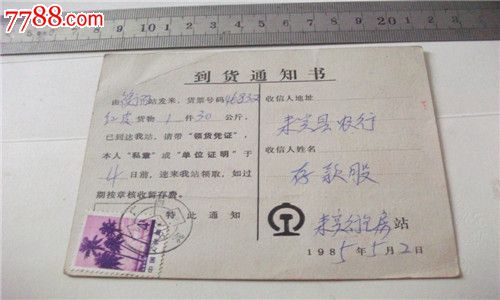 7788.com
到货通知书
由衡阳站发来，货票号码46832
红皮货物1件30公斤，
已到达我站，请带“领货凭证”，
本人“私章”或“单位证明”于
4日前，速来我站领取，如过
期按章核收暂存费。
特此通知
收信人地址
来宾县农行
收信人姓名
存款股
房站
1985年5月2日